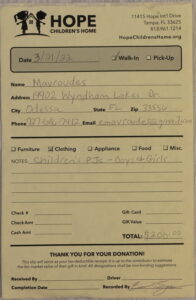 HOPE
CHILDREN'S HOME
11415 Hope Int'l Drive
Tampa, FL 33625
813/961-1214
HopeChildrensHome.org
Date 3/21/22 Walk-In Pick-Up
Name Mavroudes
Address 19902 Wyndham Lakes Dr
City Odessa State FL Zip 33556
Phone Email
Furniture Clothing Appliance Food Misc.
NOTES Children's PJs - Boys & Girls
Check # Gift Card
Check Amt Gift Value
Cash Amt TOTAL: $200.00
THANK YOU FOR YOUR DONATION!
This slip will serve as your tax-deductible receipt. It is up to the contributor to estimate
the fair market value of their gift in kind. All designations shall be non-binding suggestions.
Received By Driver
Completion Date Recorded By